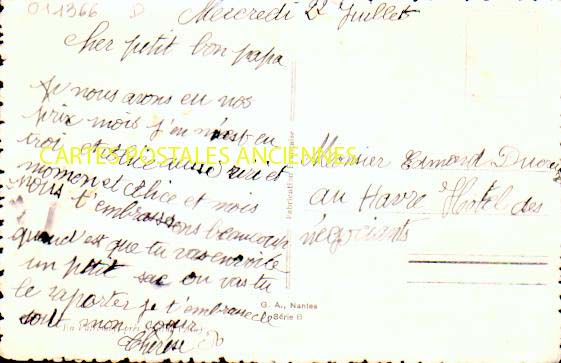 011366 D
Mercredi 22 Juillet
Cher petit bon papa
Je nous avons eu nos
prix mois j'en n'est eu
troi et Alice aussi
moment et Alice et mois
nous t'embrassons beaucoup
quand est que tu vas
un petit sac ou vas tu
le raporter je t'embrasse de
tout mon coeur
Thérèse D
CARTES POSTALES ANCIENNES
Monsieur Edmond
au Havre Hotel des
négociants
Fabrication
G. A., Nantes
Série B